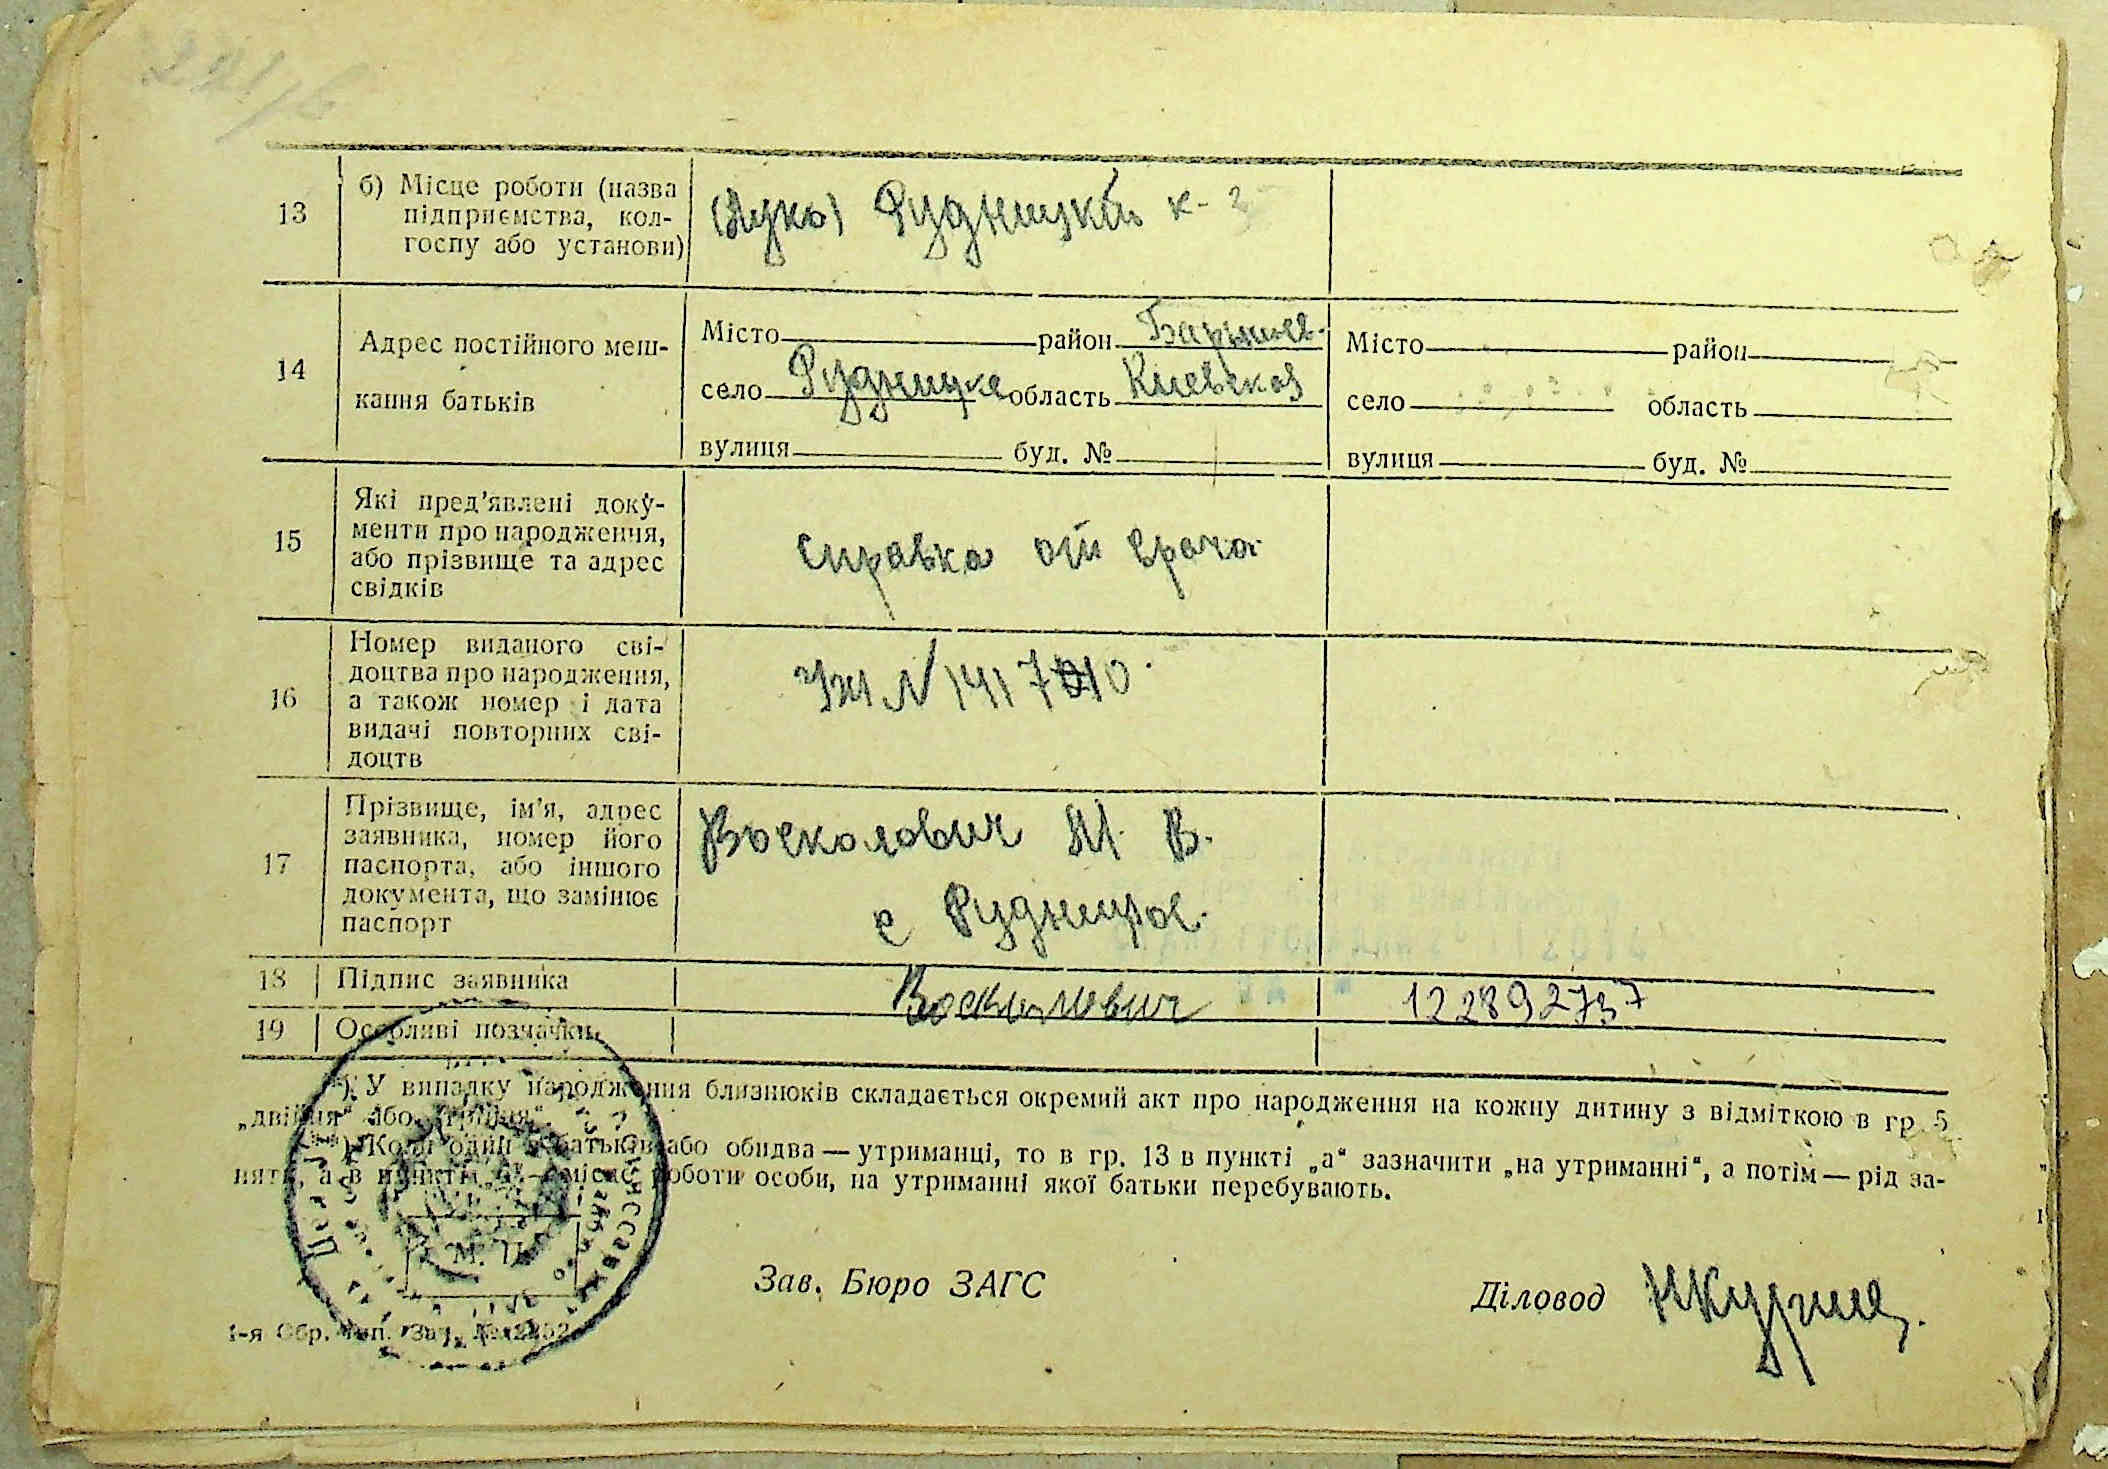 221/6
13
б) Місце роботи (назва
підприємства, кол-
госпу або установи)
Рудницкий к-з
14
Адрес постійного меш-
кання батьків
Місто район Барышев.
село Рудницке область Киевская
вулиця буд. №
Місто район
село область
вулиця буд. №
15
Які пред'явлені доку-
менти про народження,
або прізвище та адрес
свідків
справка от врача
16
Номер виданого сві-
доцтва про народження,
а також номер і дата
видачі повторних сві-
доцтв
17
Прізвище, ім'я, адрес
заявника, номер його
паспорта, або іншого
документа, що замінює
паспорт
Восколович М. В.
с
18 Підпис заявника
Восколович
19 Особливі позначки
*) У випадку народження близнюків складається окремий акт про народження на кожну дитину з відміткою в гр. 5
„двійня“ або „трійня“.
Коли один з батьків або обидва — утриманці, то в гр. 13 в пункті „а“ зазначити „на утриманні“, а потім — рід за-
няття, а в пункті „б“ — місце роботи особи, на утриманні якої батьки перебувають.
М. П.
Зав. Бюро ЗАГС
Діловод
1-я Обр. тип. Зак. №